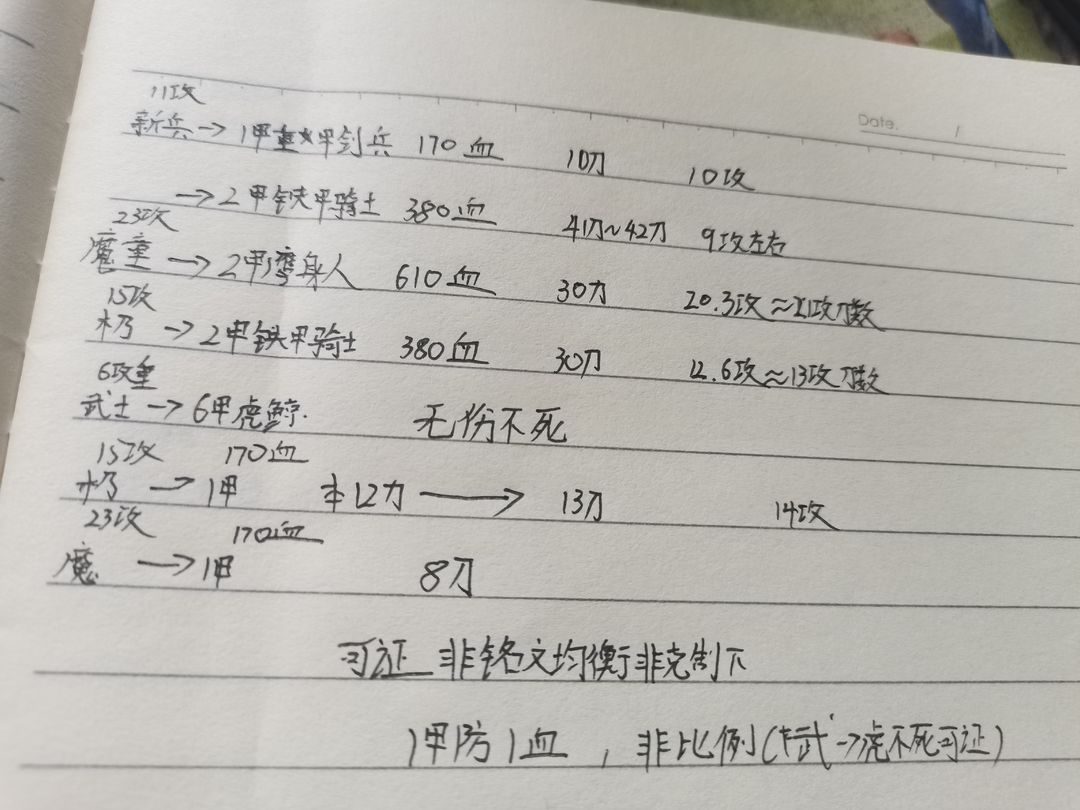 Date. /
11攻
新兵→1甲重甲剑兵 170血 10刀 10攻
→2甲铁甲骑士 380血 41刀~42刀 9攻左右
23攻
魔童→2甲湾身人 610血 30刀 20.3攻≈21攻刀数
15攻
杨→2甲铁甲骑士 380血 30刀 12.6攻≈13攻刀数
6攻重
武士→6甲虎鲸. 无伤不死
15攻 170血
杨→1甲 本12刀→13刀 14攻
23攻 170血
魔→1甲 8刀
可证 非铭文均衡非克制下
1甲防1血,非比例(武→虎不死可证)